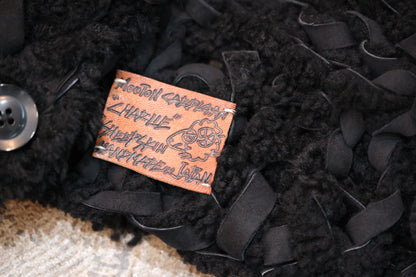 MOUTON CARDIGAN
"CHARLIE"
SHEEPSKIN
HANDMADE IN JAPAN